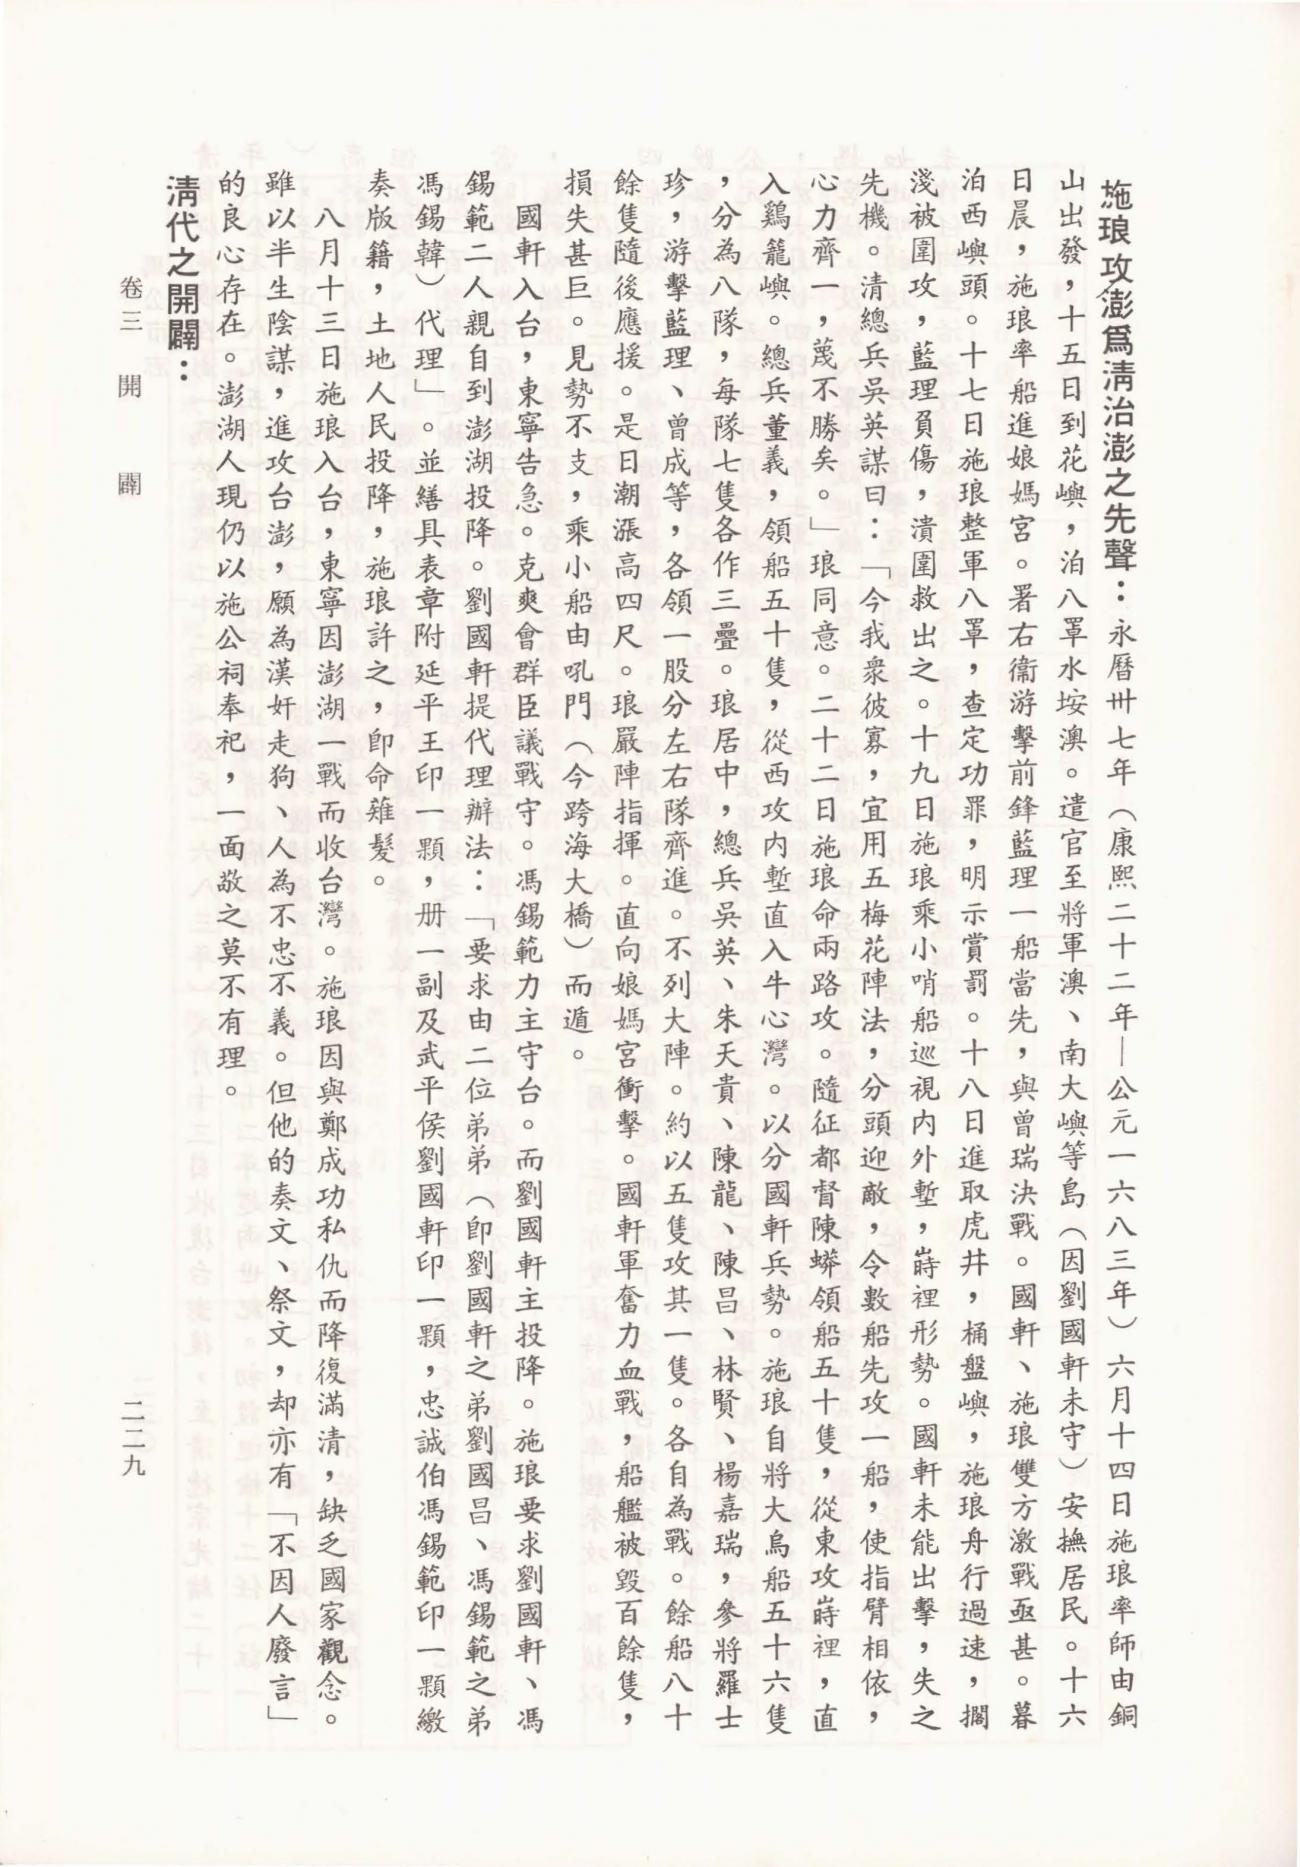 施琅攻澎爲清治澎之先聲：永曆卅七年（康熙二十二年—公元一六八三年）六月十四日施琅率師由銅
山出發，十五日到花嶼，泊八罩水垵澳。遣官至將軍澳、南大嶼等島（因劉國軒未守）安撫居民。十六
日晨，施琅率船進娘媽宮。署右衞游擊前鋒藍理一船當先，與曾瑞決戰。國軒、施琅雙方激戰亟甚。暮
泊西嶼頭。十七日施琅整軍八罩，查定功罪，明示賞罰。十八日進取虎井，桶盤嶼，施琅舟行過速，擱
淺被圍攻，藍理負傷，潰圍救出之。十九日施琅乘小哨船巡視內外塹，嵵裡形勢。國軒未能出擊，失之
先機。清總兵吳英謀曰：「今我衆彼寡，宜用五梅花陣法，分頭迎敵，令數船先攻一船，使指臂相依，
心力齊一，蔑不勝矣。」琅同意。二十二日施琅命兩路攻。隨征都督陳蟒領船五十隻，從東攻嵵裡，直
入鷄籠嶼。總兵董義，領船五十隻，從西攻內塹直入牛心灣。以分國軒兵勢。施琅自將大鳥船五十六隻
，分為八隊，每隊七隻各作三疊。琅居中，總兵吳英、朱天貴、陳龍、陳昌、林賢、楊嘉瑞，參將羅士
珍，游擊藍理、曾成等，各領一股分左右隊齊進。不列大陣。約以五隻攻其一隻。各自為戰。餘船八十
餘隻隨後應援。是日潮漲高四尺。琅嚴陣指揮。直向娘媽宮衝擊。國軒軍奮力血戰，船艦被毀百餘隻，
損失甚巨。見勢不支，乘小船由吼門（今跨海大橋）而遁。
國軒入台，東寧告急。克爽會群臣議戰守。馮錫範力主守台。而劉國軒主投降。施琅要求劉國軒、馮
錫範二人親自到澎湖投降。劉國軒提代理辦法：「要求由二位弟弟（卽劉國軒之弟劉國昌、馮錫範之弟
馮錫韓）代理」。並繕具表章附延平王印一顆，册一副及武平侯劉國軒印一顆，忠誠伯馮錫範印一顆繳
奏版籍，土地人民投降，施琅許之，卽命薙髮。
八月十三日施琅入台，東寧因澎湖一戰而收台灣。施琅因與鄭成功私仇而降復滿清，缺乏國家觀念。
雖以半生陰謀，進攻台澎，願為漢奸走狗、人為不忠不義。但他的奏文、祭文，却亦有「不因人廢言」
的良心存在。澎湖人現仍以施公祠奉祀，一面敬之莫不有理。
清代之開闢：
卷三 開 闢
二二九